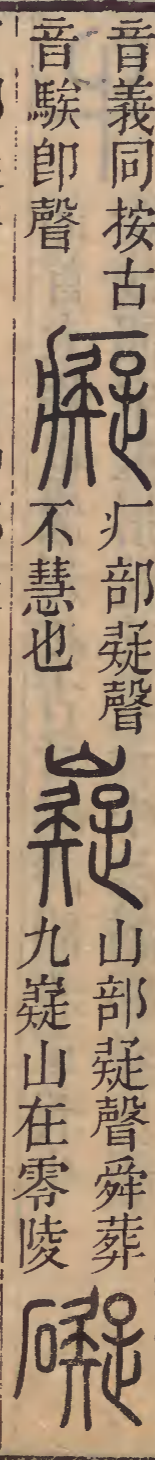 音義同按古
音騃卽聲
癡
疒部疑聲
不慧也
嶷
山部疑聲舜葬
九嶷山在零陵
礙